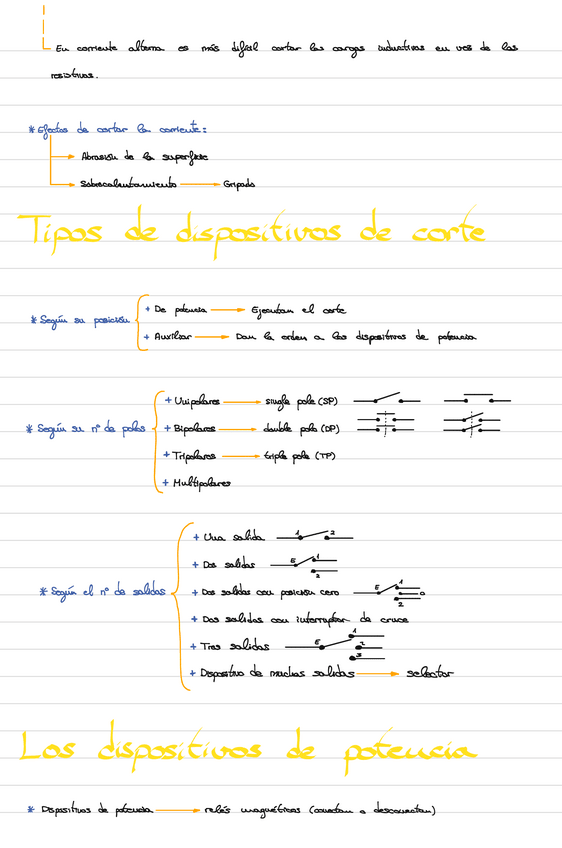 En corriente alterna es más difícil cortar las cargas inductivas en vez de las
resistivas.
* Efectos de cortar la corriente:
Abrasión de la superficie
Sobrecalentamiento → Gripado
Tipos de dispositivos de corte
* Según su posición
+ De potencia → Ejecutan el corte
+ Auxiliar → Dan la orden a los dispositivos de potencia
* Según su nº de polos
+ Unipolares → single pole (SP)
+ Bipolares → double pole (DP)
+ Tripolares → triple pole (TP)
+ Multipolares
* Según el nº de salidas
+ Una salida 1 2
+ Dos salidas E 1 2
+ Dos salidas con posición cero E 1 0 2
+ Dos salidas con interruptor de cruce
+ Tres salidas E 1 2 3
+ Dispositivo de muchas salidas → selector
Los dispositivos de potencia
* Dispositivos de potencia → relés magnéticos (conectan o desconectan)